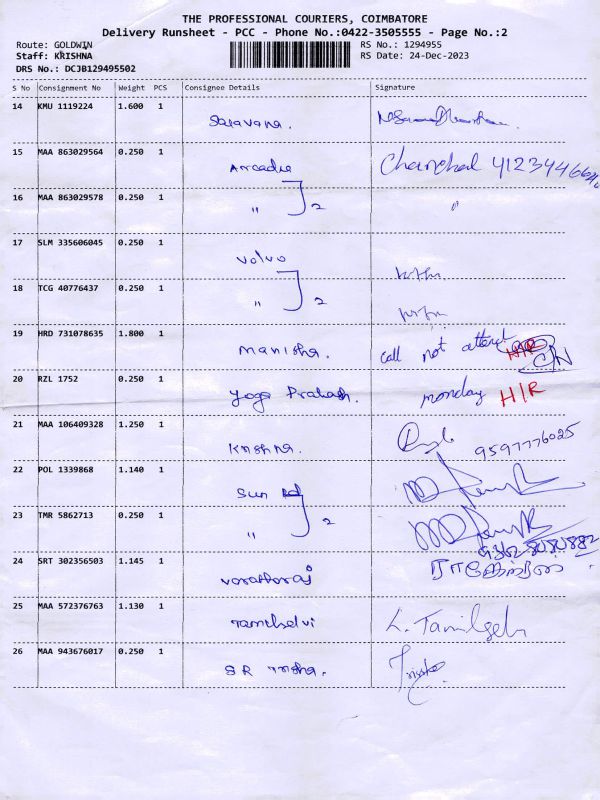 THE PROFESSIONAL COURIERS, COIMBATORE
Delivery Runsheet - PCC - Phone No.:0422-3505555 - Page No.:2
Route: GOLDWIN
RS No.: 1294955
Staff: KRISHNA
RS Date: 24-Dec-2023
DRS No.: DCJB129495502
S No Consignment No Weight PCS Consignee Details Signature
14 KMU 1119224 1.600 1
Saravana.
15 MAA 863029564 0.250 1
Arcadia Chanchal
16 MAA 863029578 0.250 1
" 2 "
17 SLM 335606045 0.250 1
Volvo
18 TCG 40776437 0.250 1
" 2
19 HRD 731078635 1.800 1
Manisha. call not attend H/R C/N
20 RZL 1752 0.250 1
Yoga Prakash. monday H/R
21 MAA 106409328 1.250 1
Krishna. 9597776025
22 POL 1339868 1.140 1
Sun
23 TMR 5862713 0.250 1
" 2
24 SRT 302356503 1.145 1
Varatharaj
25 MAA 572376763 1.130 1
Tamilselvi L. Tamilselvi
26 MAA 943676017 0.250 1
S R Trisha. Trisha